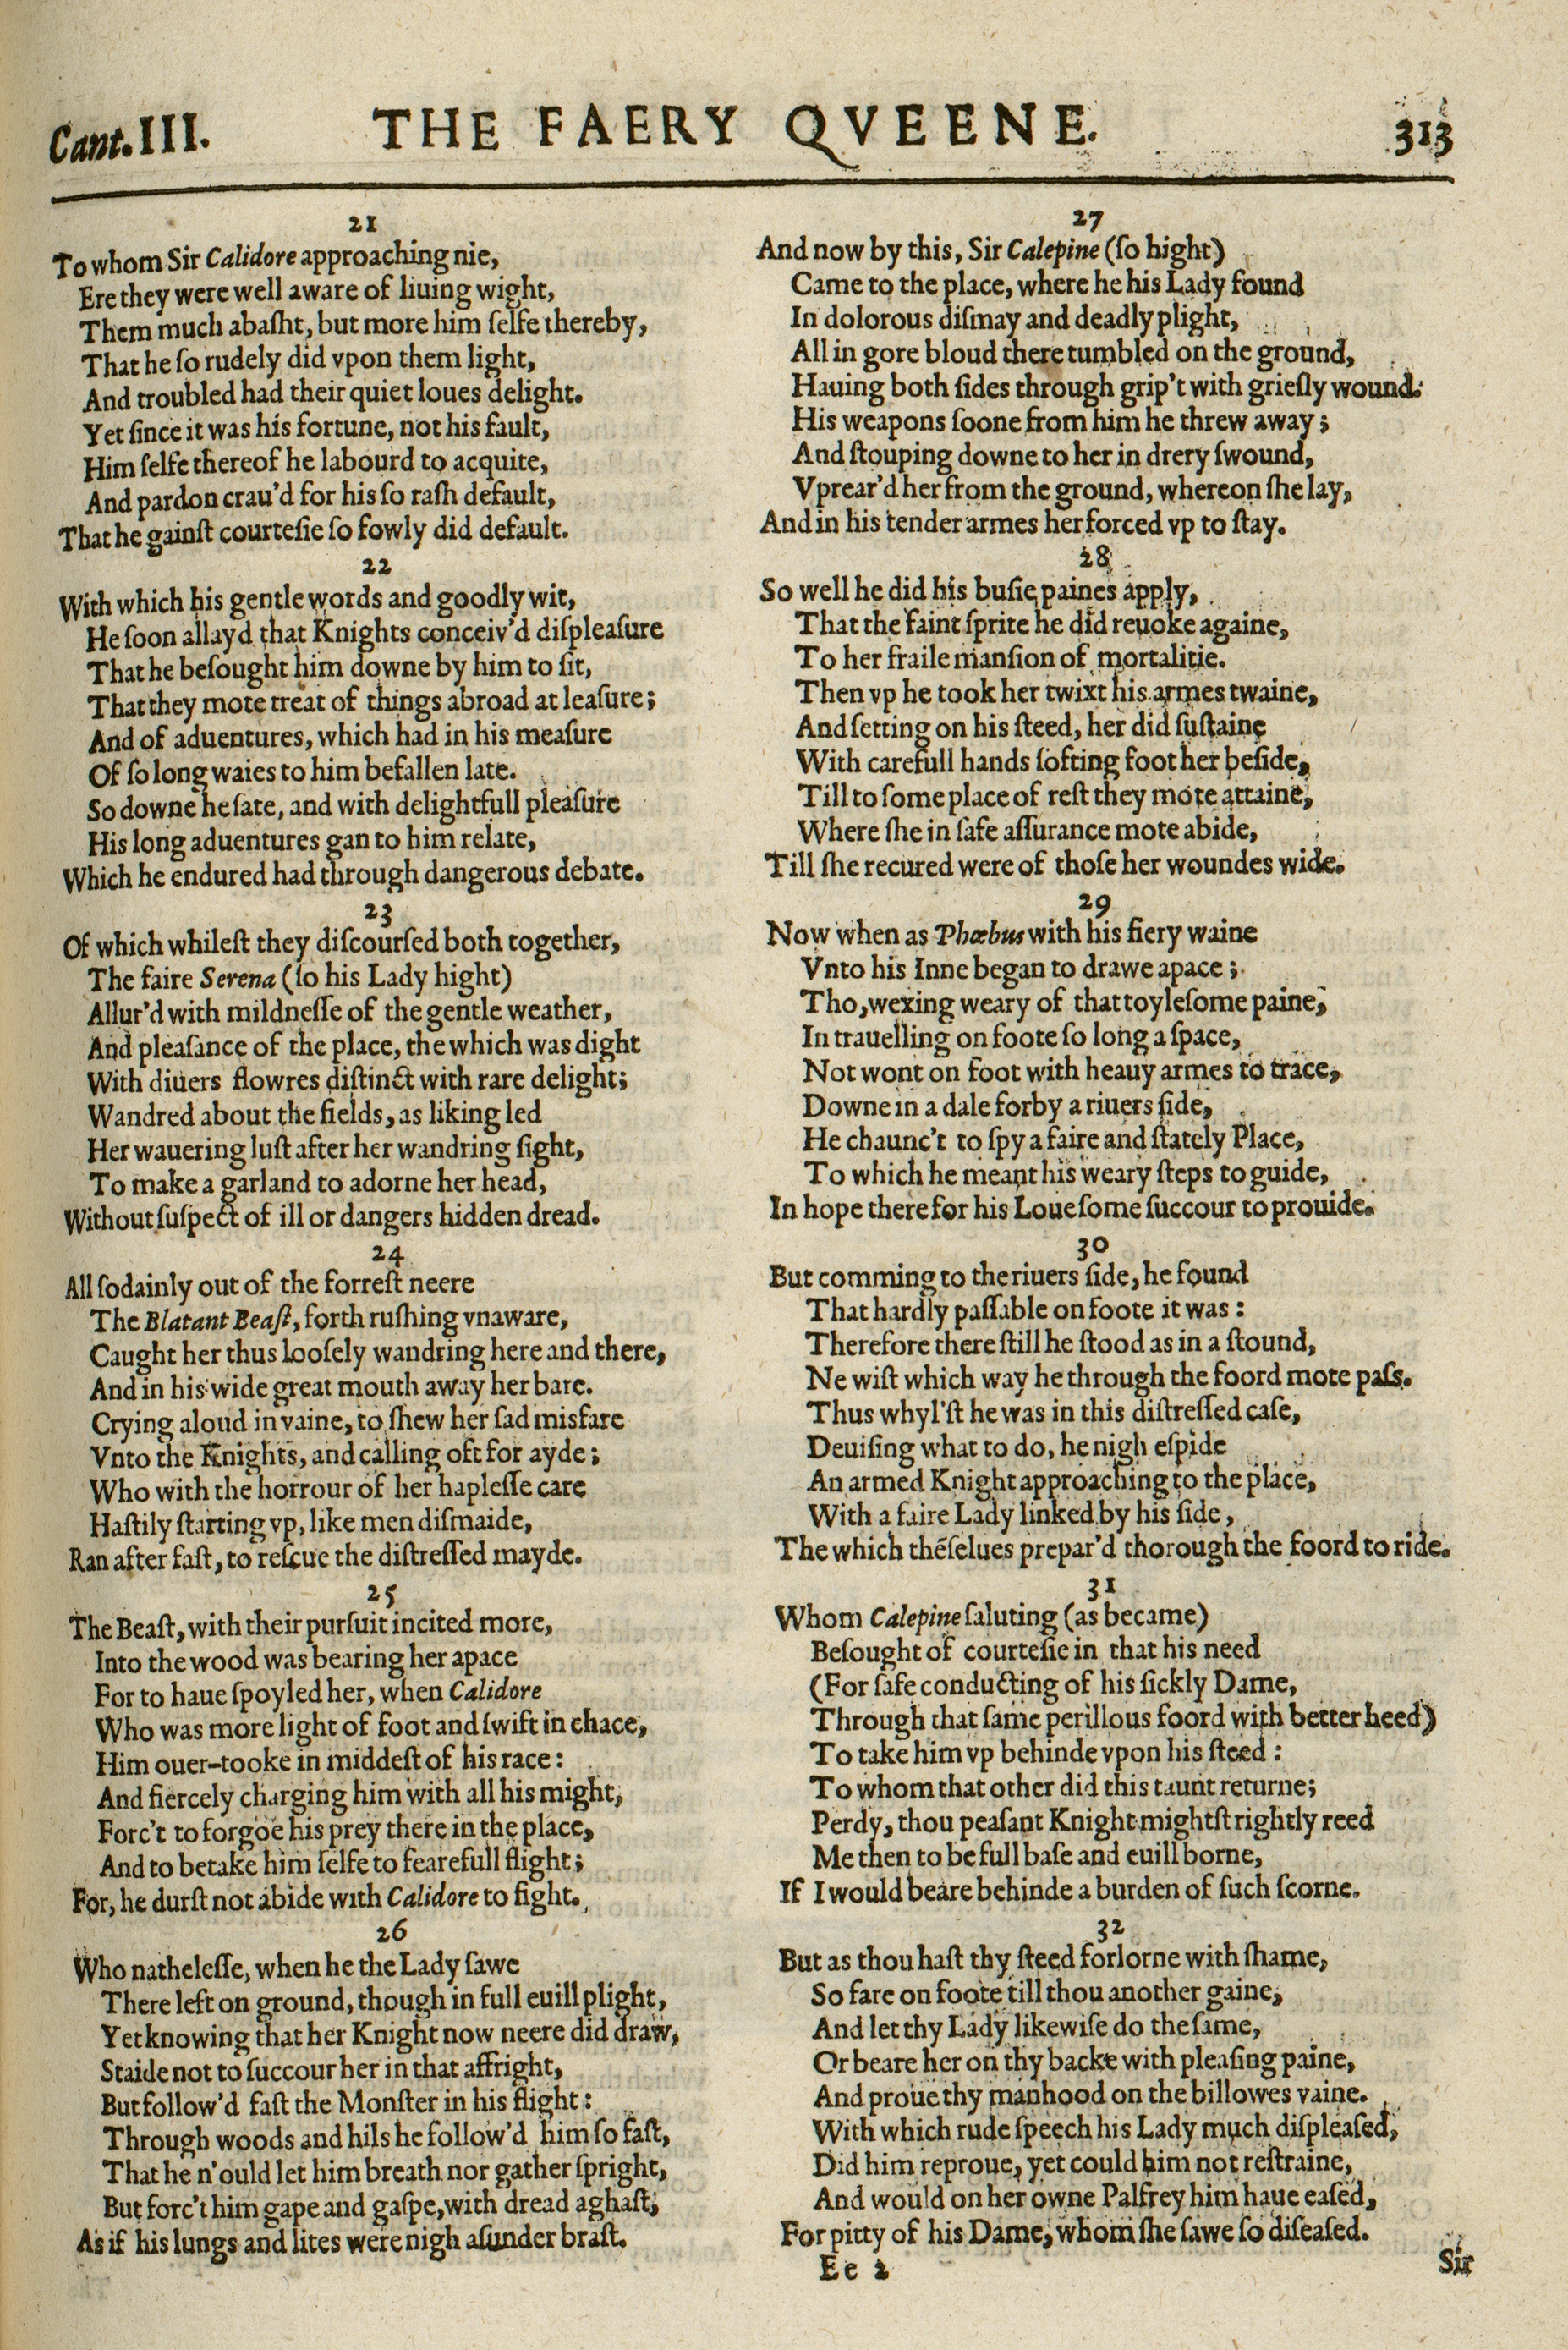 Cant. III. THE FAERY QVEENE. 313
21
To whom Sir Calidore approaching nie,
Ere they were well aware of liuing wight,
Them much abaſht, but more him ſelfe thereby,
That he ſo rudely did vpon them light,
And troubled had their quiet loues delight.
Yet ſince it was his fortune, not his fault,
Him ſelfe thereof he labourd to acquite,
And pardon crau'd for his ſo raſh default,
That he gainſt courteſie ſo fowly did default.
22
With which his gentle words and goodly wit,
He ſoon allayd that Knights conceiv'd diſpleaſure
That he beſought him downe by him to ſit,
That they mote treat of things abroad at leaſure;
And of aduentures, which had in his meaſure
Of ſo long waies to him befallen late.
So downe he ſate, and with delightfull pleaſure
His long aduentures gan to him relate,
Which he endured had through dangerous debate.
23
Of which whileſt they diſcourſed both together,
The faire Serena (ſo his Lady hight)
Allur'd with mildneſſe of the gentle weather,
And pleaſance of the place, the which was dight
With diuers flowres diſtinct with rare delight;
Wandred about the fields, as liking led
Her wauering luſt after her wandring ſight,
To make a garland to adorne her head,
Without ſuſpect of ill or dangers hidden dread.
24
All ſodainly out of the forreſt neere
The Blatant Beaſt, forth ruſhing vnaware,
Caught her thus looſely wandring here and there,
And in his wide great mouth away her bare.
Crying aloud in vaine, to ſhew her ſad misfare
Vnto the Knights, and calling oft for ayde;
Who with the horrour of her hapleſſe care
Haſtily ſtarting vp, like men diſmaide,
Ran after faſt, to reſcue the diſtreſſed mayde.
25
The Beaſt, with their purſuit incited more,
Into the wood was bearing her apace
For to haue ſpoyled her, when Calidore
Who was more light of foot and ſwift in chace,
Him ouer-tooke in middeſt of his race:
And fiercely charging him with all his might,
Forc't to forgoe his prey there in the place,
And to betake him ſelfe to fearefull flight;
For, he durſt not abide with Calidore to fight.
26
Who natheleſſe, when he the Lady ſawe
There left on ground, though in full euill plight,
Yet knowing that her Knight now neere did draw,
Staide not to ſuccour her in that affright,
But follow'd faſt the Monſter in his flight:
Through woods and hils he follow'd him ſo faſt,
That he n'ould let him breath nor gather ſpright,
But forc't him gape and gaſpe, with dread aghaſt,
As if his lungs and lites were nigh aſunder braſt.
27
And now by this, Sir Calepine (ſo hight)
Came to the place, where he his Lady found
In dolorous diſmay and deadly plight,
All in gore bloud there tumbled on the ground,
Hauing both ſides through grip't with grieſly wound.
His weapons ſoone from him he threw away;
And ſtouping downe to her in drery ſwound,
Vprear'd her from the ground, whereon ſhe lay,
And in his tender armes her forced vp to ſtay.
28
So well he did his buſie paines apply,
That the faint ſprite he did reuoke againe,
To her fraile manſion of mortalitie.
Then vp he took her twixt his armes twaine,
And ſetting on his ſteed, her did ſuſtaine
With carefull hands ſofting foot her beſide,
Till to ſome place of reſt they mote attaine,
Where ſhe in ſafe aſſurance mote abide,
Till ſhe recured were of thoſe her woundes wide.
29
Now when as Phœbus with his fiery waine
Vnto his Inne began to drawe apace;
Tho, wexing weary of that toyleſome paine,
In trauelling on foote ſo long a ſpace,
Not wont on foot with heauy armes to trace,
Downe in a dale forby a riuers ſide,
He chaunc't to ſpy a faire and ſtately Place,
To which he meant his weary ſteps to guide,
In hope there for his Loue ſome ſuccour to prouide.
30
But comming to the riuers ſide, he found
That hardly paſſable on foote it was:
Therefore there ſtill he ſtood as in a ſtound,
Ne wiſt which way he through the foord mote paſs.
Thus whyl'ſt he was in this diſtreſſed caſe,
Deuiſing what to do, he nigh eſpide
An armed Knight approaching to the place,
With a faire Lady linked by his ſide,
The which thēſelues prepar'd thorough the foord to ride.
31
Whom Calepine ſaluting (as became)
Beſought of courteſie in that his need
(For ſafe conducting of his ſickly Dame,
Through that ſame perillous foord with better heed)
To take him vp behinde vpon his ſteed:
To whom that other did this taunt returne;
Perdy, thou peaſant Knight mightſt rightly reed
Me then to be full baſe and euill borne,
If I would beare behinde a burden of ſuch ſcorne.
32
But as thou haſt thy ſteed forlorne with ſhame,
So fare on foote till thou another gaine,
And let thy Lady likewiſe do the ſame,
Or beare her on thy backe with pleaſing paine,
And proue thy manhood on the billowes vaine.
With which rude ſpeech his Lady much diſpleaſed,
Did him reproue, yet could him not reſtraine,
And would on her owne Palfrey him haue eaſed,
For pitty of his Dame, whom ſhe ſawe ſo diſeaſed.
Ee 2 Sir